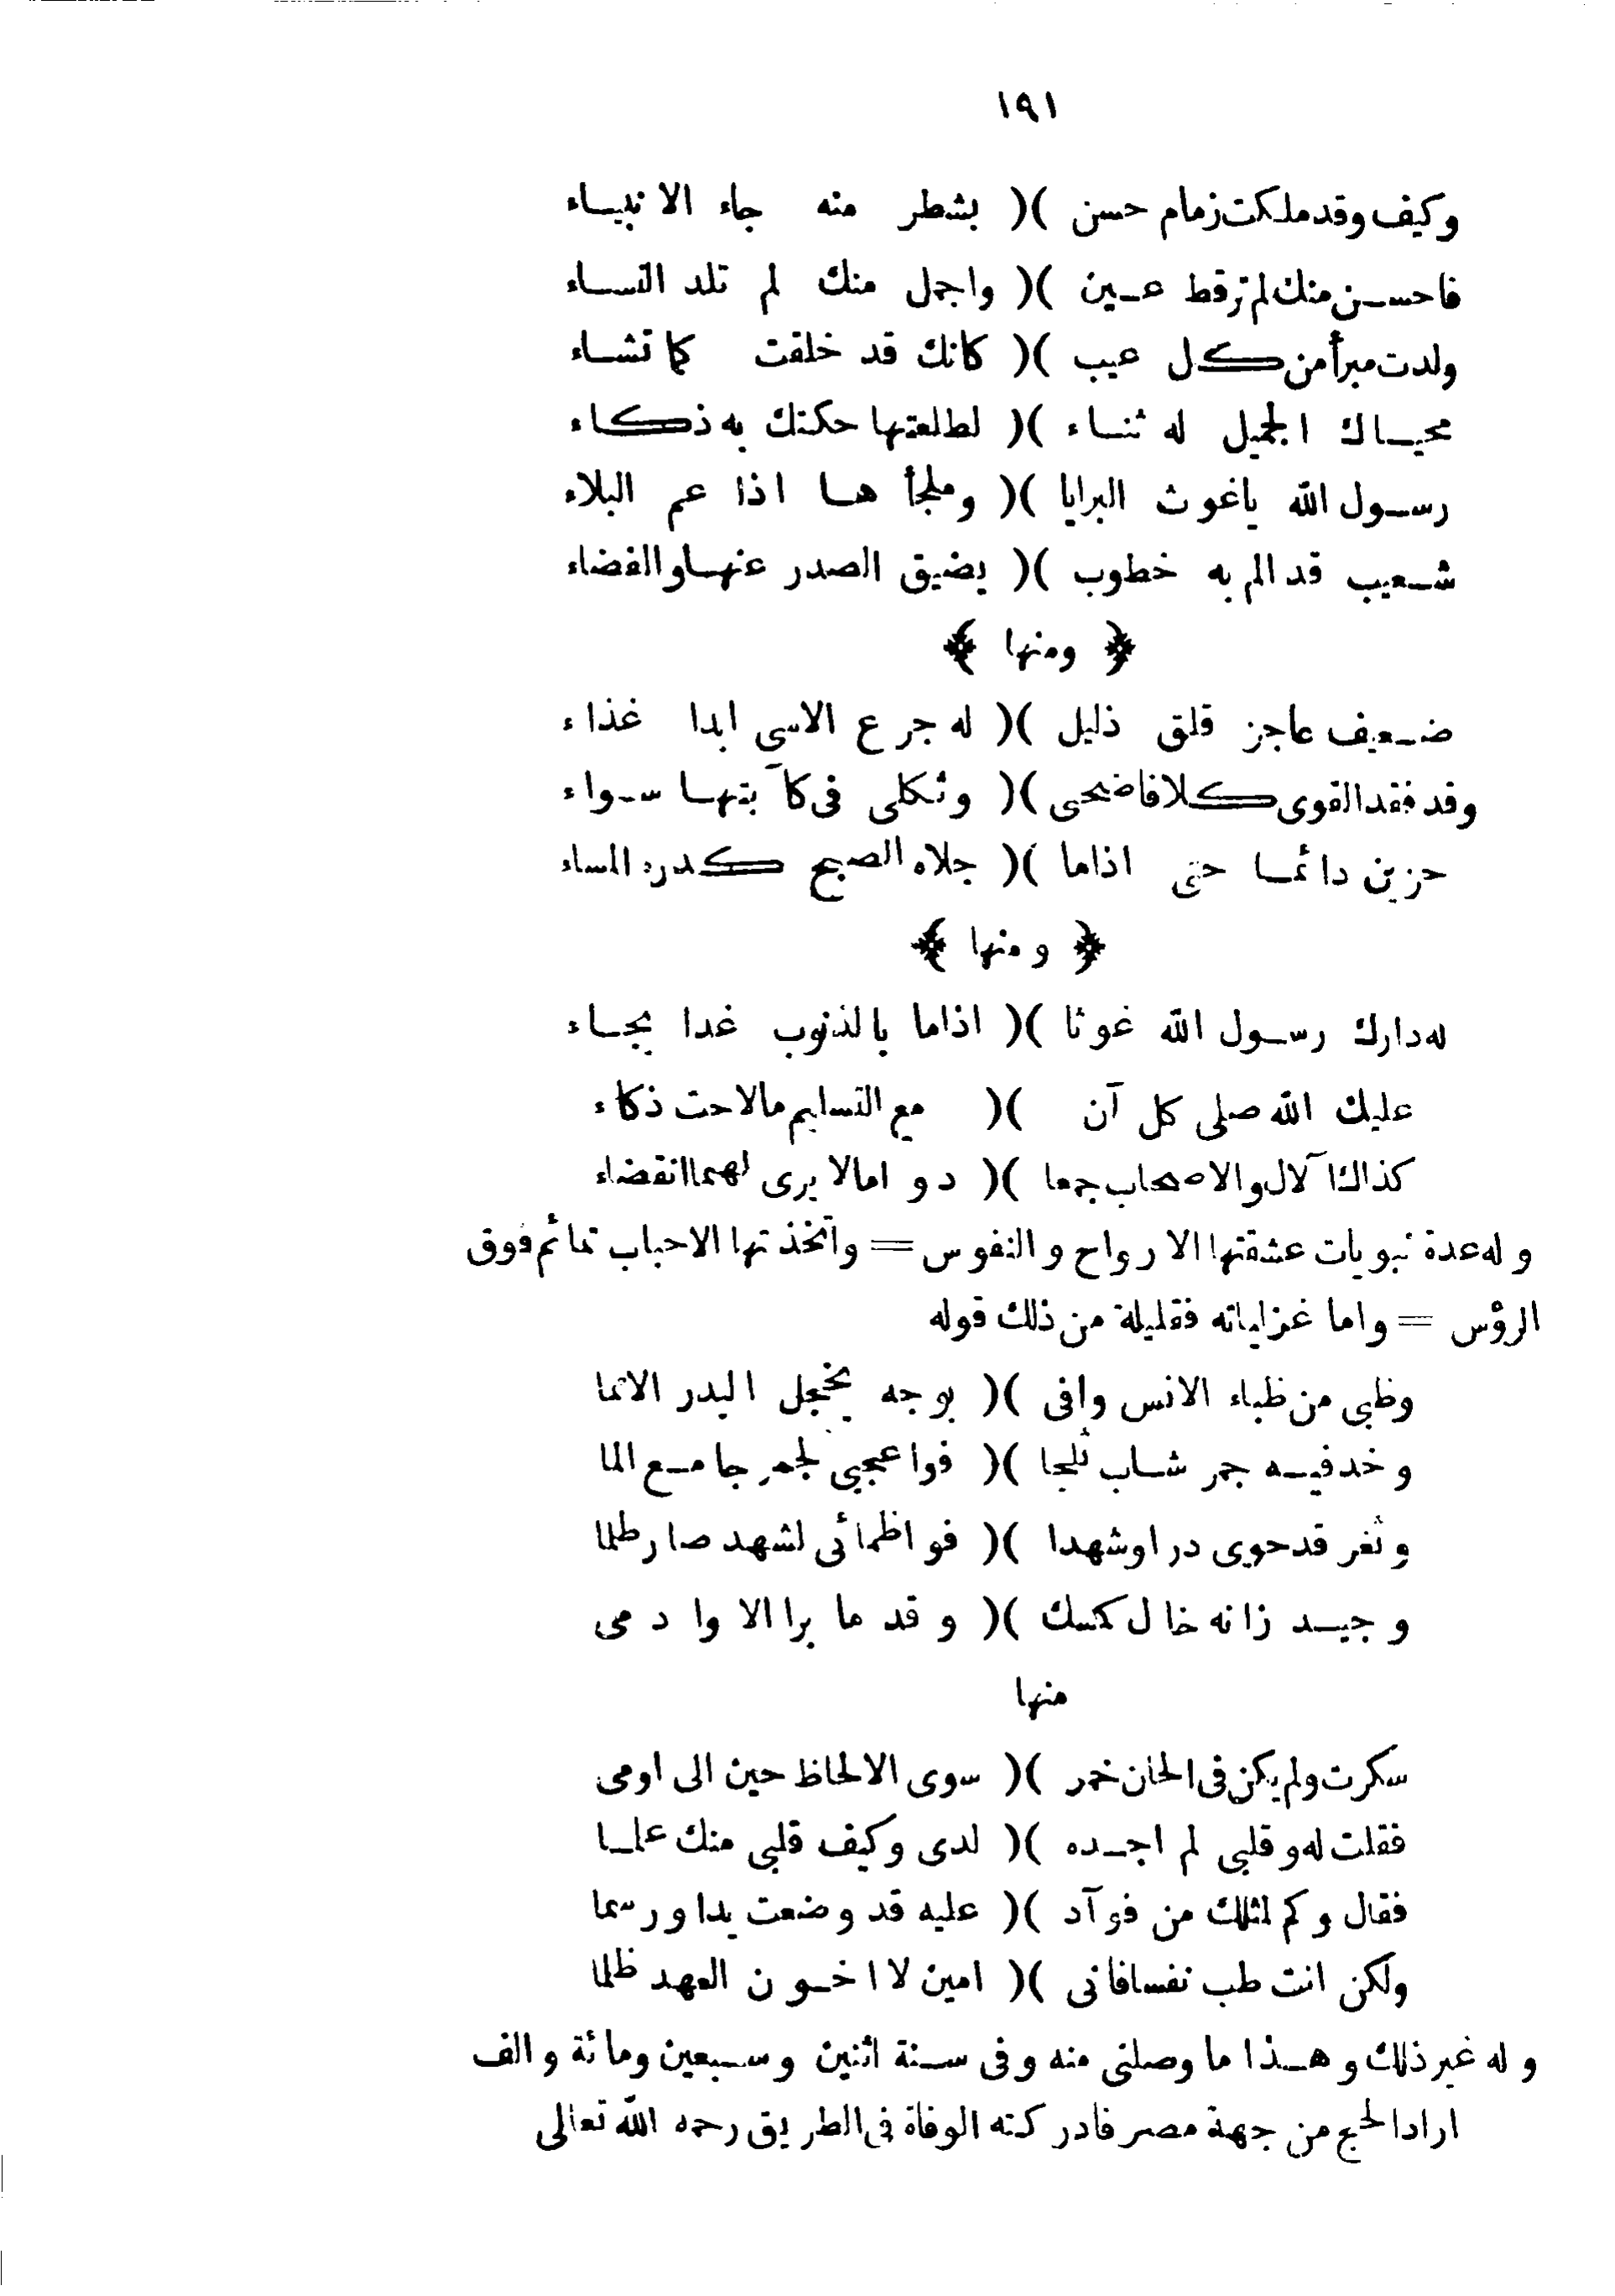 ١٩١
وكيف وقد ملكت زمام حسن )( بشطر منه جاء الانبياء
فاحسن منك لم ترقط عين )( واجمل منك لم تلد النساء
ولدت مبرأ من كل عيب )( كانك قد خلقت كما تشاء
محياك الجميل له ثناء )( لطلعتها حكتك به ذكاء
رسول الله ياغوث البرايا )( وملجأها اذا عم البلاء
شعيب قد الم به خطوب )( يضيق الصدر عنها والفضاء
﴿ ومنها ﴾
ضعيف عاجز قلق ذليل )( له جرع الاسى ابدا غذاء
وقد فقد القوى كلا فاضحى )( وثكلى فى كآبتها سواء
حزين دائما حتى اذاما )( جلاه الصبح كدره المساء
﴿ ومنها ﴾
له دارك رسول الله غوثا )( اذاما بالذنوب غدا يجاء
عليك الله صلى كل آن )( مع التسليم مالاحت ذكاء
كذاك الآل والاصحاب جمعا )( دواما لا يرى لهما انقضاء
وله عدة نبويات عشقتها الارواح والنفوس = واتخذتها الاحباب تمائم فوق
الرؤس = واما غزلياته فقليلة من ذلك قوله
وظبى من ظباء الانس وافى )( بوجه يخجل البدر الاتما
وخد فيه جمر شاب ثلجا )( فواعجبي لجمر جامع الما
وثغر قد حوى درا وشهدا )( فواظمائى لشهد صار ظلما
وجيد زانه خال كمسك )( وقد ما برا الا وادمى
منها
سكرت ولم يكن فى الحان خمر )( سوى الالحاظ حين الى اومى
فقلت له وقلبى لم اجده )( لدى وكيف قلبى منك علما
فقال وكم لمثلك من فوآد )( عليه قد وضعت يدا ورسما
ولكن انت طب نفسا فانى )( امين لا اخون العهد ظلما
وله غير ذلك وهذا ما وصلنى منه وفى سنة اثنين وسبعين ومائة والف
اراد الحج من جهة مصر فادركته الوفاة فى الطريق رحمه الله تعالى